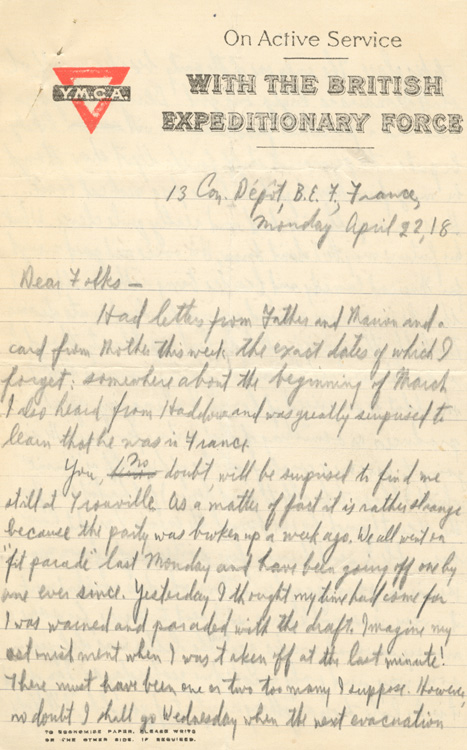 On Active Service
WITH THE BRITISH
EXPEDITIONARY FORCE
Y.M.C.A.
13 Con. Dépôt, B.E.F., France,
Monday April 22, 18
Dear Folks –
Had letters from Father and Marion and a
card from Mother this week the exact dates of which I
forget; somewhere about the beginning of March
I also heard from Haddow and was greatly surprised to
learn that he was in France.
You, no doubt, will be surprised to find me
still at Trouville. As a matter of fact it is rather strange
because the party was broken up a week ago. We all went on
"fit parade" last Monday and have been going off one by
one ever since. Yesterday I thought my time had come for
I was warned and paraded with the draft. Imagine my
astonishment when I was taken off at the last minute!
There must have been one or two too many I suppose. However,
no doubt I shall go Wednesday when the next evacuation
TO ECONOMISE PAPER, PLEASE WRITE
ON THE OTHER SIDE, IF REQUIRED.